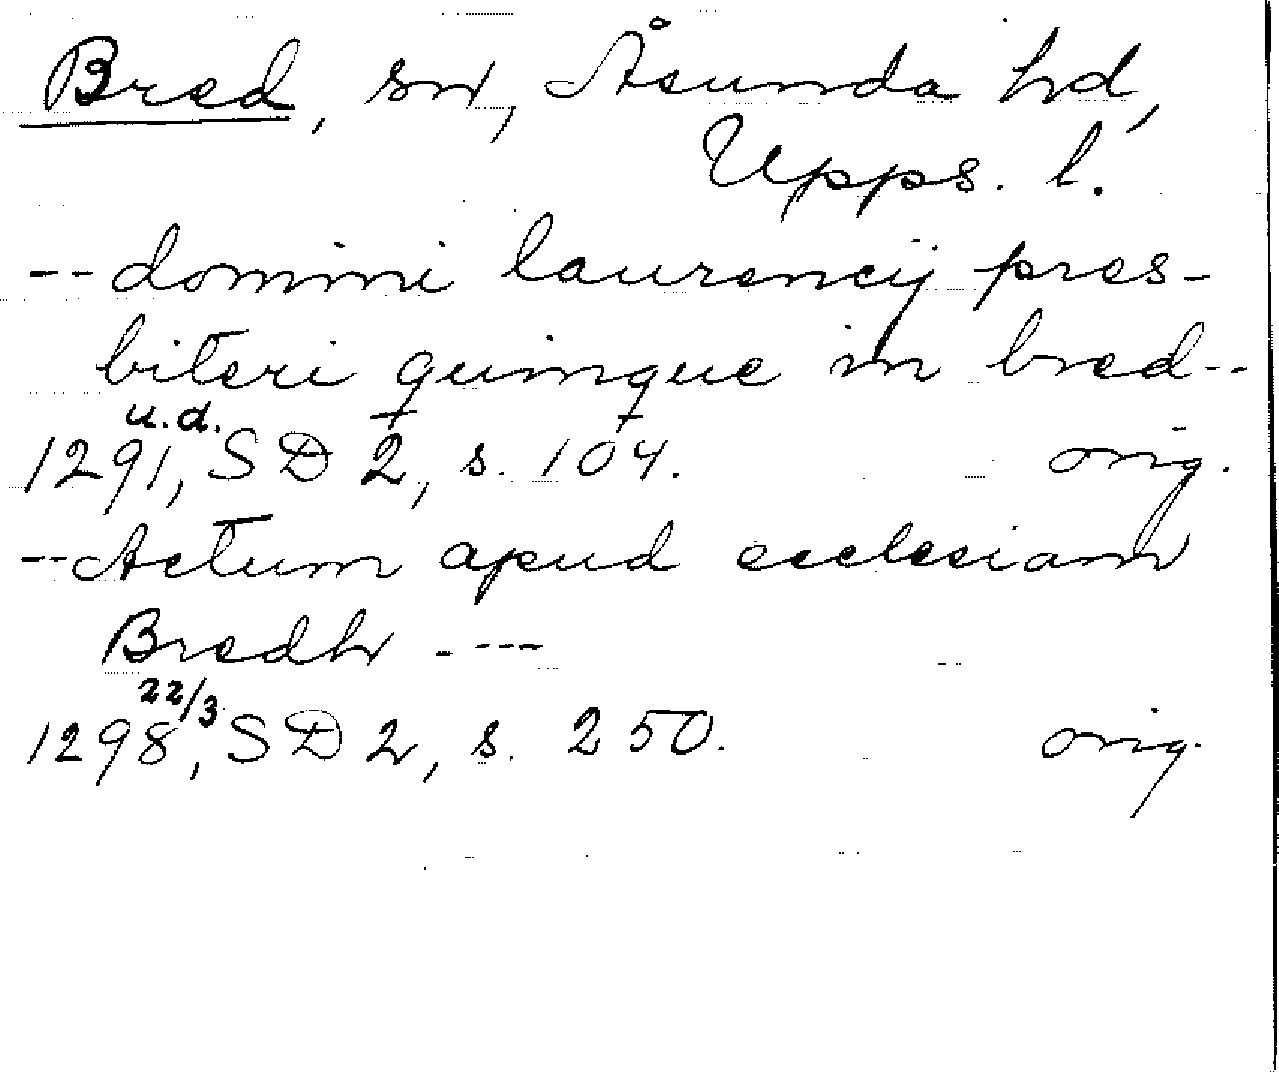 Bred, sn, Åsunda hd,
Upps. l.
-- domini laurencij pres-
biteri quinque in bred--
1291 u.d., SD 2, s. 104. orig.
-- Actum apud ecclesiam
Bredh ----
1298 22/3, SD 2, s. 250. orig.